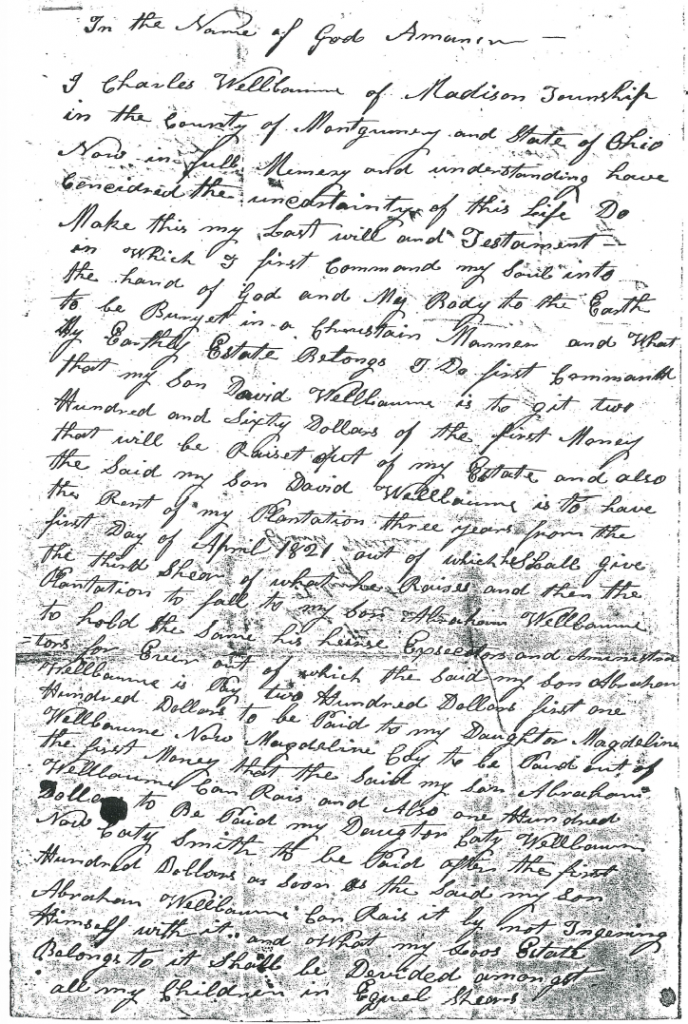 In the Name of God Amanen —
I Charles Wellbaume of Madison Township
in the County of Montgumery and State of Ohio
Now in full Memery and understanding have
Concidred the uncertainty of this Life Do
Make this my Last will and Testament —
in Which I first Command my Soul into
the hand of God and My Body to the Earth
to be Buryet in a Christain Manner and What
My Earthly Estate Belongs I Do first Command
that my Son David Wellbaume is to git two
Hundred and Sixty Dollars of the first Money
that will be Raiset out of my Estate and also
the Said my Son David Wellbaume is to have
the Rent of my Plantation three years from the
first Day of April 1821 out of which he Shall give
the third Shear of what he Raises and then the
Plantation to fall to my Son Abraham Wellbaume
to hold the Same his heirse Exseedors and Aministra
=tors for Ever out of which the Said my Son Abraham
Wellbaume is Pay two Hundred Dollars first one
Hundred Dollars to be Paid to my Daughtor Magdeline
Wellbaume Now Magdeline Edy to be Paid out of
the first Money that the Said my Son Abraham
Wellbaume Can Rais and Also one Hundred
Dollars to Be Paid my Daugtor Caty Wellbaum
Now Caty Smith to be Paid after the first
Hundred Dollars as Soon as the Said my Son
Abraham Wellbaume Can Rais it by not Ingering
Himself with it and What my Loos Estate
Belongs to it Shall be Devided amongst
all my Children in Equel Shears